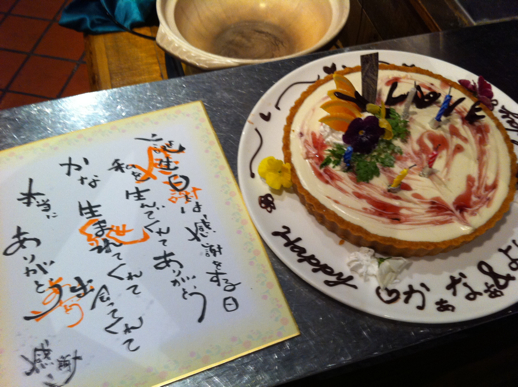 誕生日は感謝をする日
私を生んでくれてありがとう
かな 生まれてくれて
出会てくれて
本当に ありがとう
感謝
Happy
かぁなぁ&